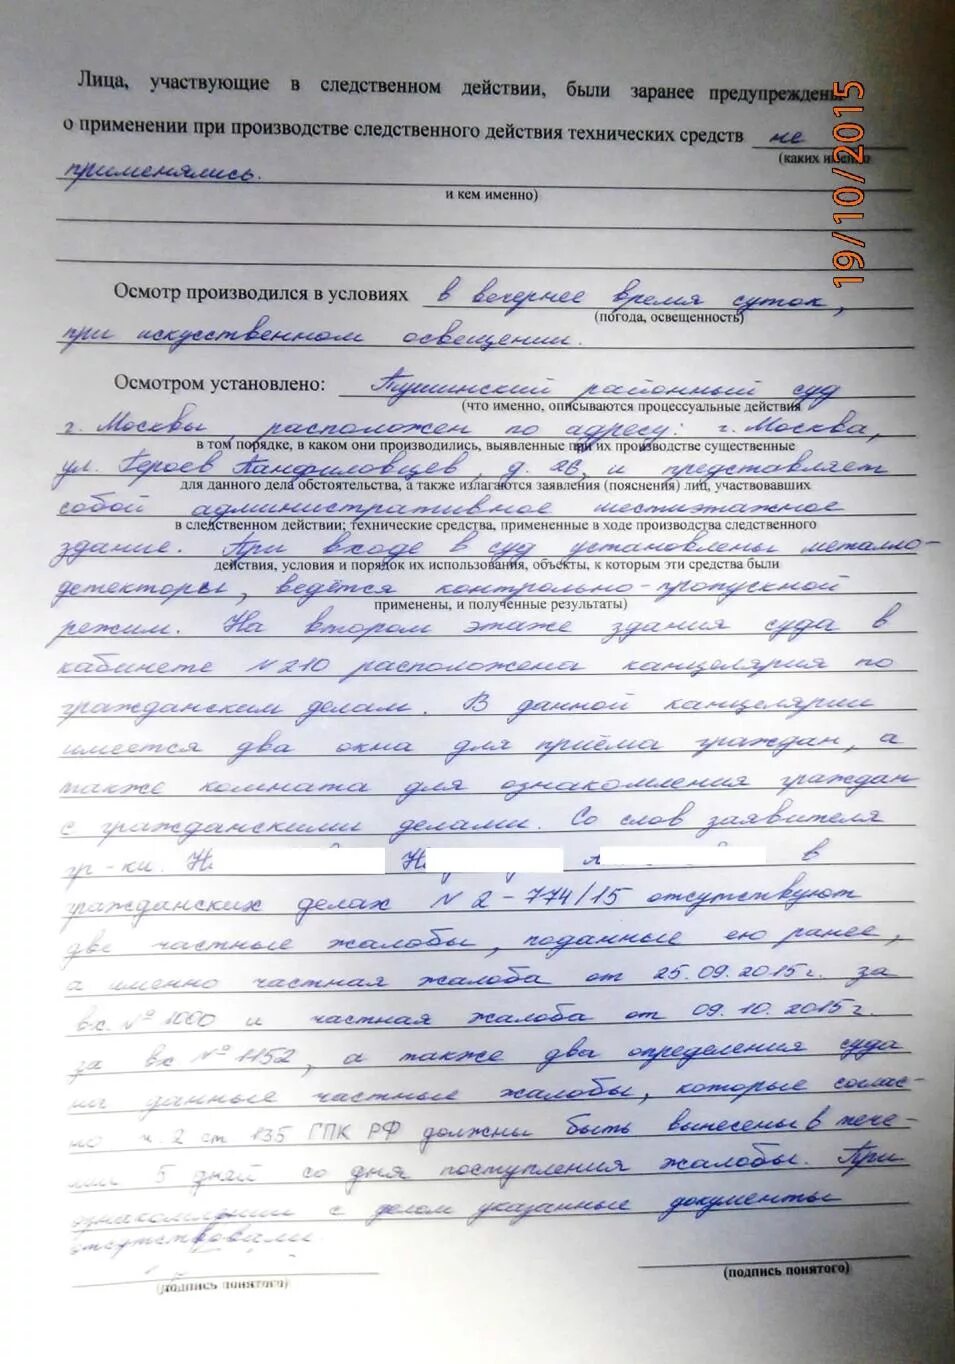 Лица, участвующие в следственном действии, были заранее предупреждены
о применении при производстве следственного действия технических средств не
(каких именно
применялись.
и кем именно)
19/10/2015
Осмотр производился в условиях в вечернее время суток,
(погода, освещенность)
при искусственном освещении.
Осмотром установлено: Тушинский районный суд
(что именно, описываются процессуальные действия
г. Москвы расположен по адресу: г. Москва,
в том порядке, в каком они производились, выявленные при их производстве существенные
ул. Героев Панфиловцев, д. 26, и представляет
для данного дела обстоятельства, а также излагаются заявления (пояснения) лиц, участвовавших
собой административное шестиэтажное
в следственном действии; технические средства, примененные в ходе производства следственного
здание. При входе в суд установлены металло-
действия, условия и порядок их использования, объекты, к которым эти средства были
детекторы, ведётся контрольно-пропускной
применены, и полученные результаты)
режим. На втором этаже здания суда в
кабинете N 210 расположена канцелярия по
гражданским делам. В данной канцелярии
имеется два окна для приёма граждан, а
также комната для ознакомления граждан
с гражданскими делами. Со слов заявителя
гр-ки. Н Н в
гражданских делах N 2-774/15 отсутствуют
две частные жалобы, поданные ею ранее,
а именно частная жалоба от 25.09.2015г. за
вх. № 1000 и частная жалоба от 09.10.2015г.
за вх № 1152, а также два определения суда
на данные частные жалобы, которые соглас-
но ч. 2 ст 135 ГПК РФ должны быть вынесены в тече-
нии 5 дней со дня поступления жалобы. При
ознакомлении с делом указанные документы
отсутствовали.
(подпись понятого)
(подпись понятого)